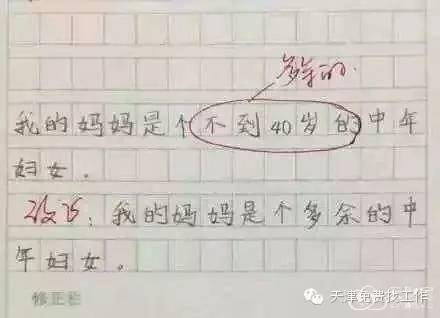 多余的.
我的妈妈是个不到40岁的中年
妇女。
改正：我的妈妈是个多余的中
年妇女。
修正栏
天津免费找工作